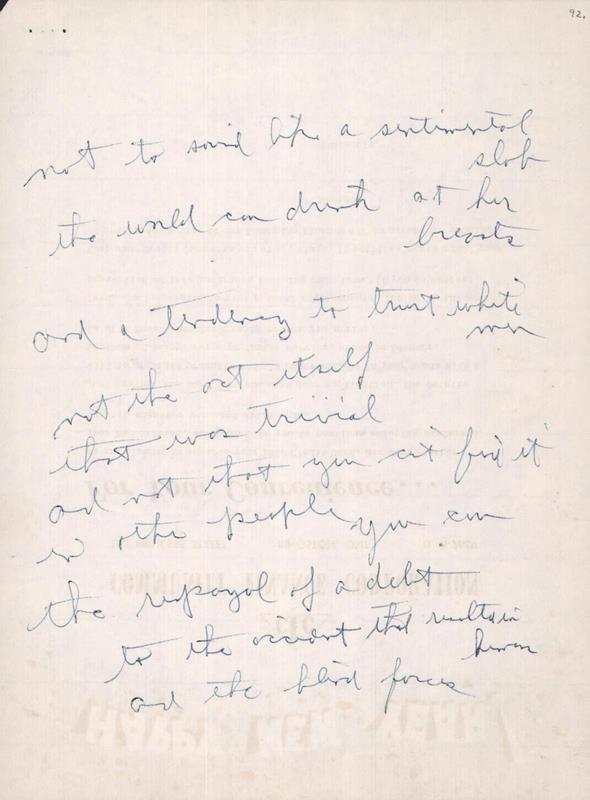 92.
not to sound like a sentimental
slob
the world can drink at her
breasts
and a tendency to trust white
men
not the act itself
that was trivial
and not that you can't find it
in other people you can
the repayal of a debt
to the accident that results in
human
and the blind forces